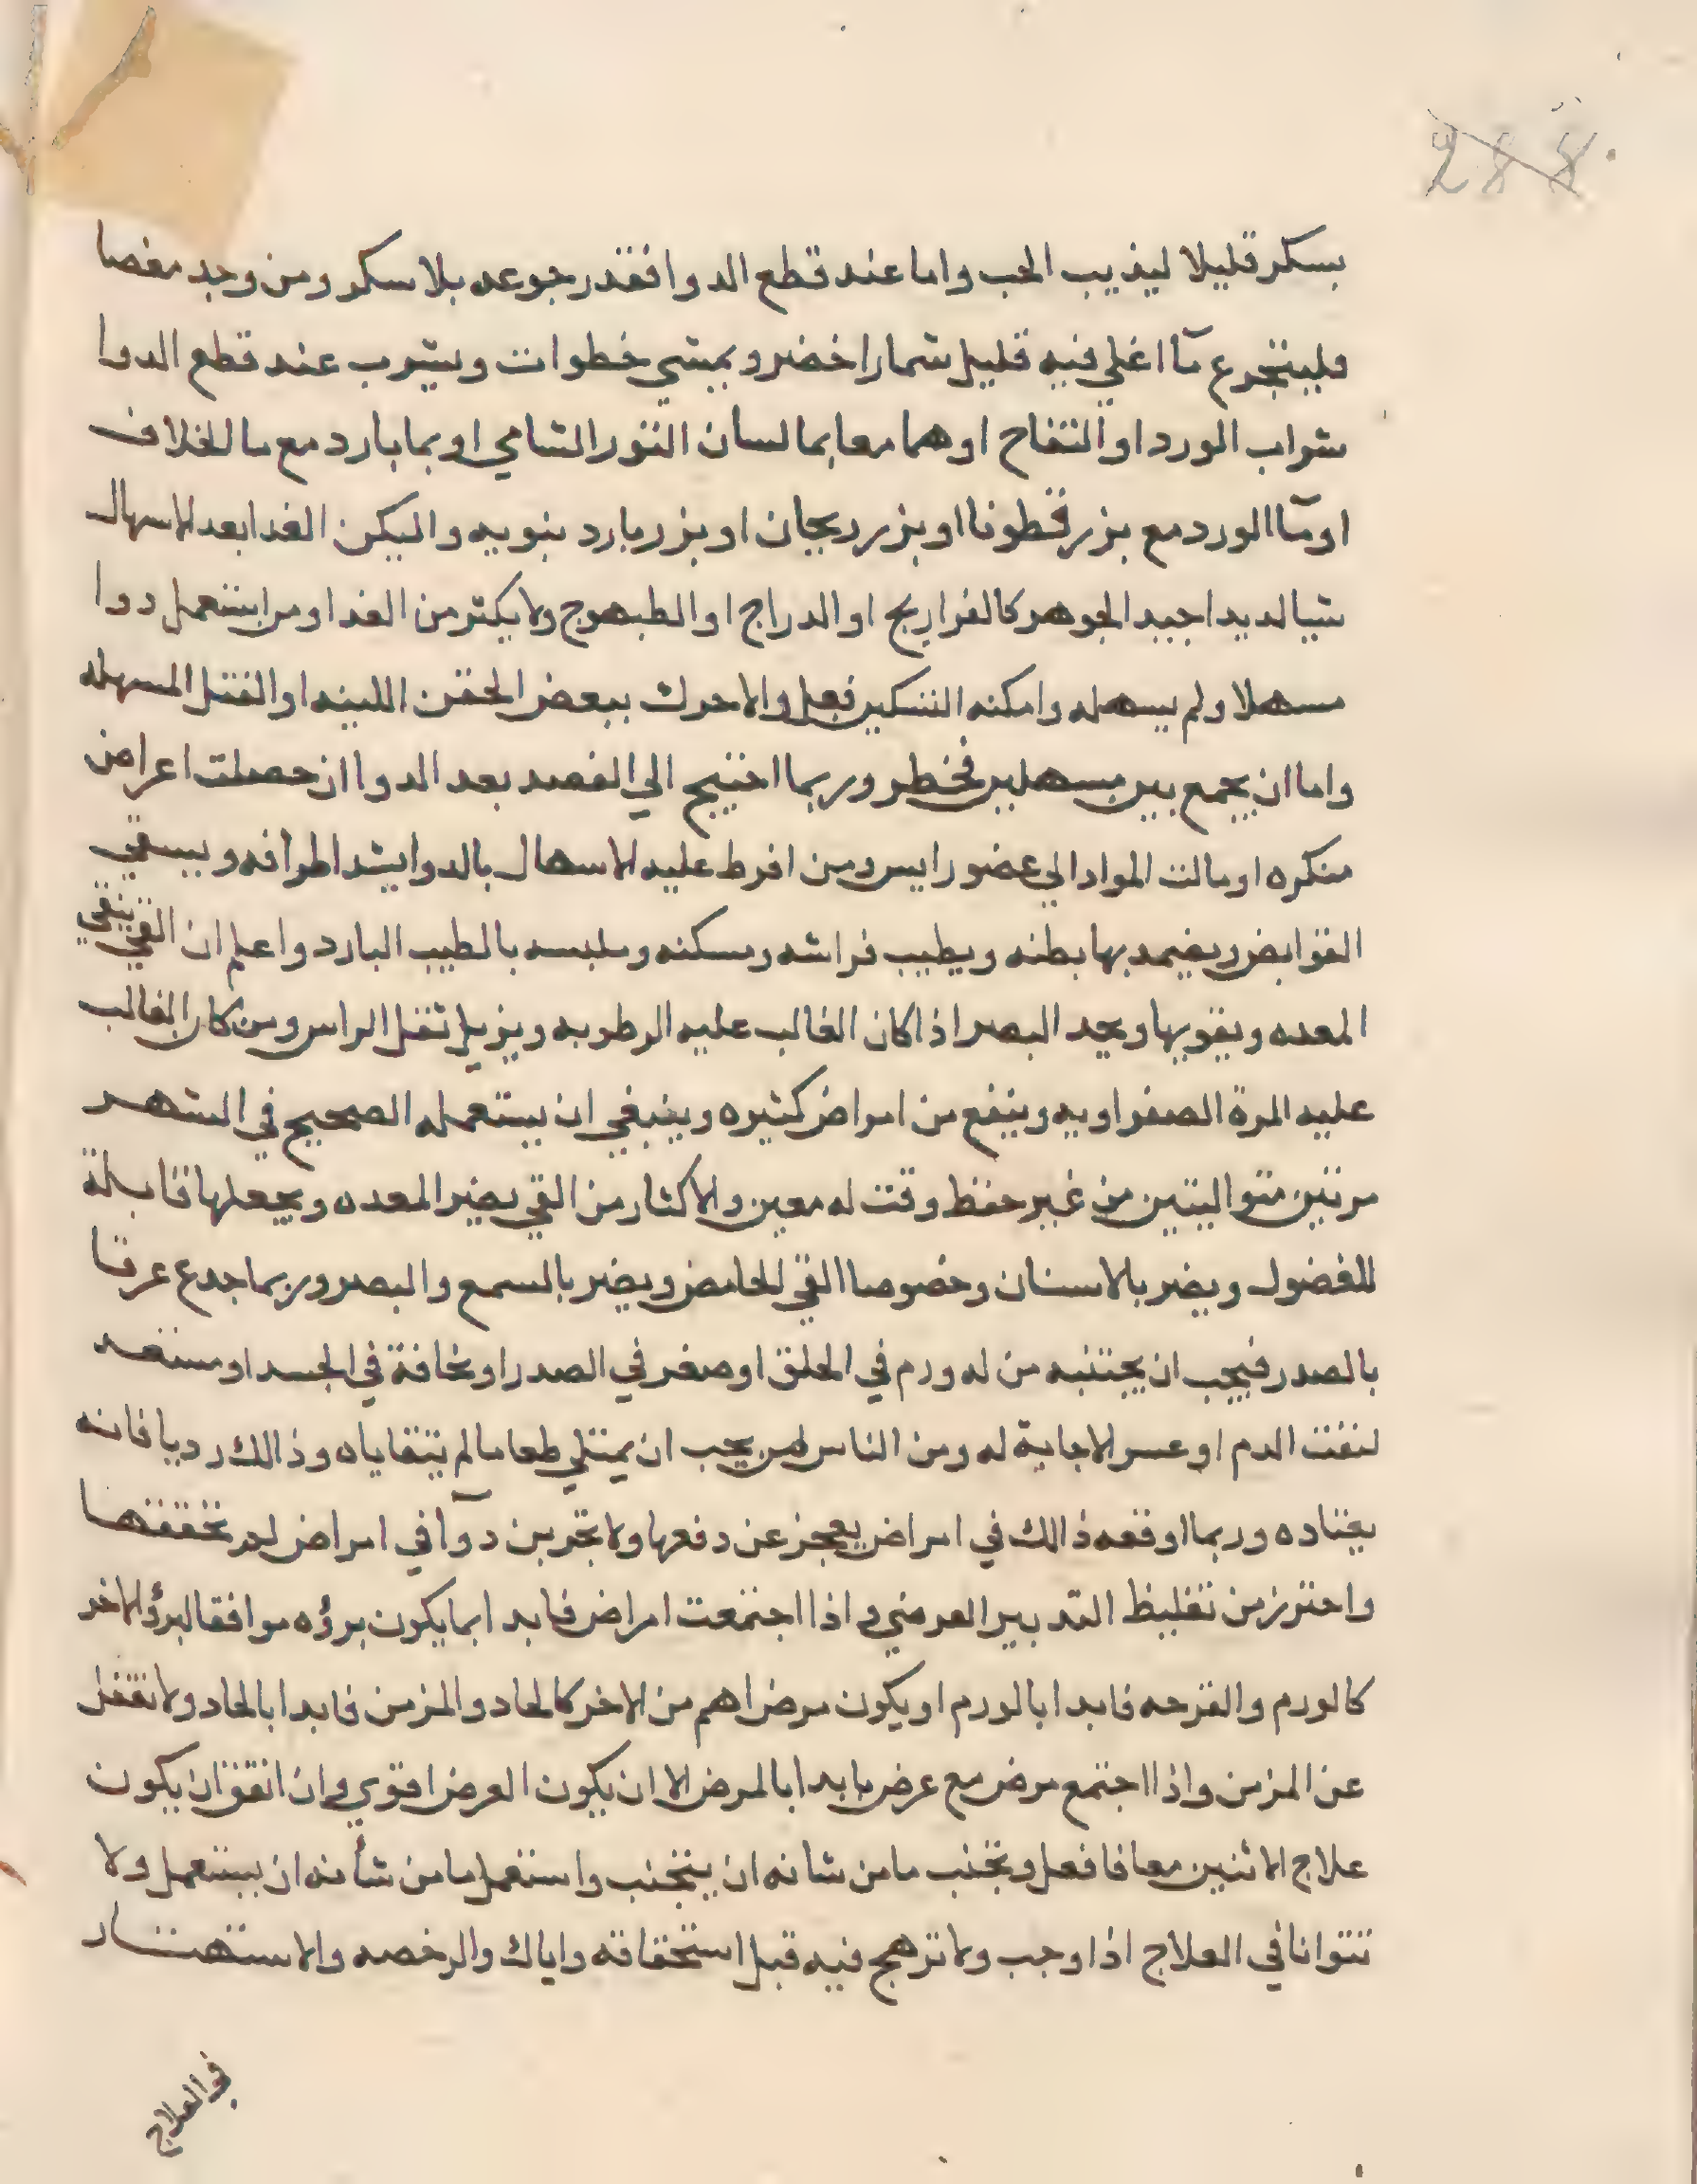 288
بسكر قليلا ليذيب الحب واما عند قطع الدوا فقدر جوعه بلا سكر ومن وجد مغصا
فليتجرع مآ اغلي فيه قليل شمار اخضر ويمشي خطوات ويشرب عند قطع الدوا
شراب الورد او التفاح او هما معا بما لسان الثور الشامي او بما بارد مع ما الخلاف
او مآ الورد مع بزر قطونا او بزر ريحان او بزر بارد بنوبيه واليكن الغدا بعد الاسهال
شيا لديدا جيد الجوهر كالفراريج او الدراج او الطيهوج ولا يكثر من الغدا ومن استعمل دوا
مسهلا ولم يسهله وامكنه التسكين فعل والا حرك ببعض الحقن اللينه او الفتل المسهله
واما ان يجمع بين مسهلين فخطر وربما احتيج الي الفصد بعد الدوا ان حصلت اعراض
منكره او مالت المواد الي عضو رايس ومن افرط عليه الاسهال بالدوا يشد اطرافه ويسقي
القوابض ويضمد بها بطنه ويطيب فراشه ومسكنه وملبسه بالطيب البارد واعلم ان القي ينقي
المعده ويقويها ويحد البصر اذا كان الغالب عليه الرطوبه ويزيل ثقل الراس ومن كان الغالب
عليه المرة الصفراويه وينفع من امراض كثيره وينبغي ان يستعمله الصحيح في الشهر
مرتين متواليتين من غير حفظ وقت له معين والاكثار من القي يضر المعده ويجعلها قابلة
للفضول ويضر بالاسنان وخصوصا القي الحامض ويضر بالسمع والبصر وربما جدع عرقا
بالصدر فيجب ان يجتنبه من له ورم في الحلق او صغر في الصدر او نحافة في الجسد او مستعد
لنفث الدم او عسر الاجابة له ومن الناس من يحب ان يمتلي طعاما لم يتقاياه وذالك رديا فانه
يعتاده وربما اوقعه ذالك في امراض يعجز عن دفعها ولا تجربن دوآ في امراض لم تحققها
واحترز من تغليظ التدبير العرضي واذا اجتمعت امراض فابدا بما يكون برؤه موافقا لبرؤ الاخر
كالورم والقرحه فابدا بالورم او يكون مرض اهم من الاخر كالحاد والمزمن فابدا بالحاد ولا تغفل
عن المزمن واذا اجتمع مرض مع عرض بابدا بالمرض الا ان يكون العرض اقوي وان اتفق ان يكون
علاج الاثنين معا فافعل وتجنب ما من شانه ان يتجنب واستعمل ما من شأنه ان يستعمل ولا
تتوانا في العلاج اذا وجب ولا ترهج فيه قبل استحقاقه واياك والرخصه والاستهتار
في العلاج